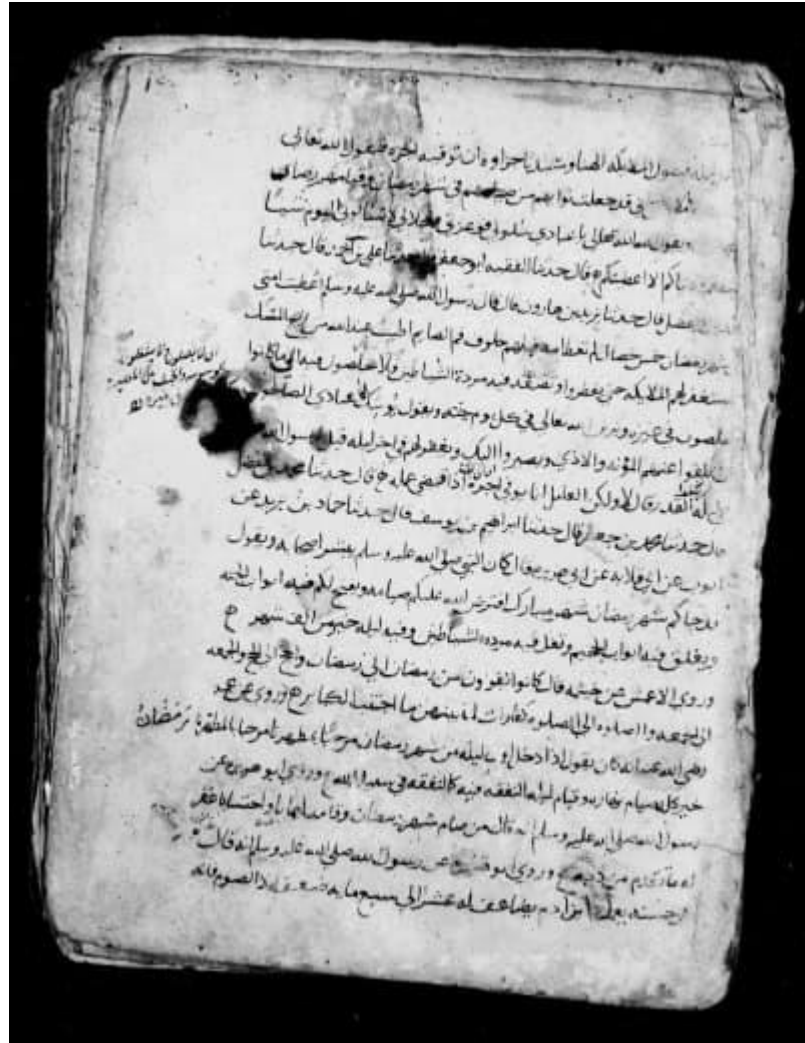 فيقول الملائكة الهنا وسيدنا جزاؤه ان توفيه اجره فيقول الله تعالى
اني قد جعلت ثوابهم من صيامهم في شهر رمضان وقيامهم رضاي
ويقول الله تعالى يا عبادي سلوني فوعزتي وجلالي لا تسألوني اليوم شيئا
الا اعطيتكم ح قال حدثنا الفقيه ابو جعفر قال حدثنا علي بن احمد قال حدثنا
قال حدثنا يزيد بن هارون قال قال رسول الله صلى الله عليه وسلم اعطيت امتي
شهر رمضان خمس خصال لم تعطها امة قبلهم خلوف فم الصايم اطيب عند الله من ريح المسك
تستغفر لهم الملائكة حتى يفطروا وتصفد فيه مردة الشياطين فلا يخلصون فيه الى ما كانوا
يخلصون في غيره ويزين الله تعالى في كل يوم جنته ويقول يوشك عبادي الصالحون
ان يلقوا عنهم المؤنة والاذى ويصيروا اليك ويغفر لهم في اخر ليلة قيل يا رسول الله
اهي ليلة القدر قال لا ولكن العامل انما يوفى اجره اذا قضى عمله ح قال حدثنا محمد بن الفضل
قال حدثنا محمد بن جعفر قال حدثنا ابراهيم بن يوسف قال حدثنا حماد بن زيد عن
ايوب عن ابي قلابة عن ابي هريرة قال كان النبي صلى الله عليه وسلم يبشر اصحابه ويقول
قد جاكم شهر رمضان شهر مبارك افترض الله عليكم صيامه ويفتح لكم فيه ابواب الجنة
ويغلق فيه ابواب الجحيم وتغل فيه مردة الشياطين وفيه ليلة خير من الف شهر ح
وروى الاعمش عن خيثمة قال كانوا يقولون من رمضان الى رمضان والحج الى الحج والجمعة
الى الجمعة والصلوة الى الصلوة كفارات لما بينهن ما اجتنب الكبائر ح وروي عن عمر
رضي الله عنه انه كان يقول اذا دخل اول ليلة من شهر رمضان مرحبا بمطهرنا مرحبا بالمطهر رمضان
خير كله صيام نهاره وقيام ليله النفقة فيه كالنفقة في سبيل الله ح وروى ابو هريرة عن
رسول الله صلى الله عليه وسلم انه قال من صام شهر رمضان وقامه ايمانا واحتسابا غفر
له ما تقدم من ذنبه ح وروى ابو هريرة عن رسول الله صلى الله عليه وسلم انه قال
كل حسنة يعملها ابن ادم يضاعف له عشر الى سبع مائة ضعف الا الصوم فانه